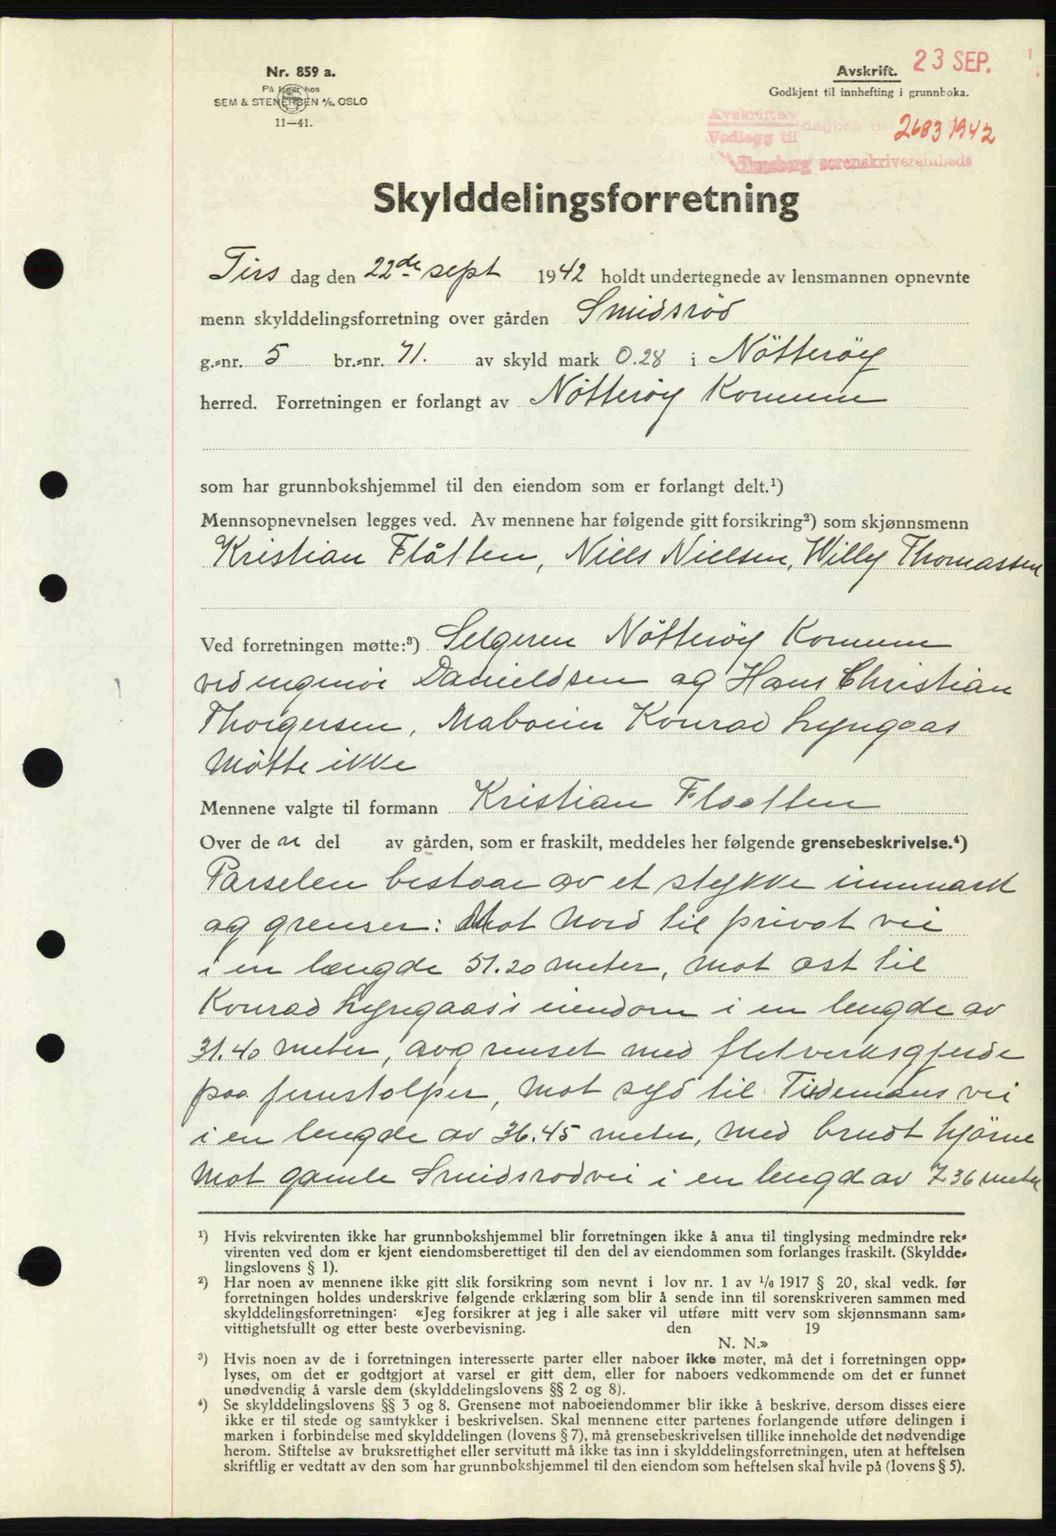 Nr. 859 a.
På lager hos
SEM & STENERSEN A/S, OSLO
11—41.
Avskrift. 23 SEP.
Godkjent til innhefting i grunnboka.
Avskrift av
Vedlegg til dagbok nr 2683 1942
Tønsberg sorenskriverembede
Skylddelingsforretning
Tirs dag den 22de sept 1942 holdt undertegnede av lensmannen opnevnte
menn skylddelingsforretning over gården Smidsröd
g.-nr. 5 br.-nr. 71. av skyld mark 0.28 i Nötteröy
herred. Forretningen er forlangt av Nötteröy Komune
som har grunnbokshjemmel til den eiendom som er forlangt delt.¹)
Mennsopnevnelsen legges ved. Av mennene har følgende gitt forsikring²) som skjønnsmenn
Kristian Flåtten, Niels Nielsen, Willy Thomassen
Ved forretningen møtte:³) Selgeren Nötteröy Komune
ved ingeniör Danieldsen og Hans Christian
Thorgersen, Naboeier Konrad Lyngaas
Mötte ikke
Mennene valgte til formann Kristian Flaatten
Over de n del av gården, som er fraskilt, meddeles her følgende grensebeskrivelse.⁴)
Parselen bestaar av et stykke innmark
og grenser: Mot Nord til privat vei
i en længde 51.20 meter, mot ost til
Konrad Lyngaas's eiendom i en lengde av
31.40 meter, avgrenset med fletverksgjerde
paa jernstolper, mot syd til Tidemans vei
i en lengde av 36.45 meter, med brudt hjörne
Mot gamle Smidsrodvei i en lengd av 7.36 meter
¹) Hvis rekvirenten ikke har grunnbokshjemmel blir forretningen ikke å anta til tinglysing medmindre rek-
virenten ved dom er kjent eiendomsberettiget til den del av eiendommen som forlanges fraskilt. (Skyldde-
lingslovens § 1).
²) Har noen av mennene ikke gitt slik forsikring som nevnt i lov nr. 1 av 1/6 1917 § 20, skal vedk. før
forretningen holdes underskrive følgende erklæring som blir å sende inn til sorenskriveren sammen med
skylddelingsforretningen: «Jeg forsikrer at jeg i alle saker vil utføre mitt verv som skjønnsmann sam-
vittighetsfullt og etter beste overbevisning. den 19
N. N.»
³) Hvis noen av de i forretningen interesserte parter eller naboer ikke møter, må det i forretningen opp-
lyses, om det er godtgjort at varsel er gitt dem, eller for naboers vedkommende om det er funnet
unødvendig å varsle dem (skylddelingslovens §§ 2 og 8).
⁴) Se skylddelingslovens §§ 3 og 8. Grensene mot naboeiendommer blir ikke å beskrive, dersom disses eiere
ikke er til stede og samtykker i beskrivelsen. Skal mennene etter partenes forlangende utføre delingen i
marken i forbindelse med skylddelingen (lovens § 7), må grensebeskrivelsen tillike inneholde det nødvendige
herom. Stiftelse av bruksrettighet eller servitutt må ikke tas inn i skylddelingsforretningen, uten at heftelsen
skriftlig er vedtatt av den som har grunnbokshjemmel til den eiendom som heftelsen skal hvile på (lovens § 5).